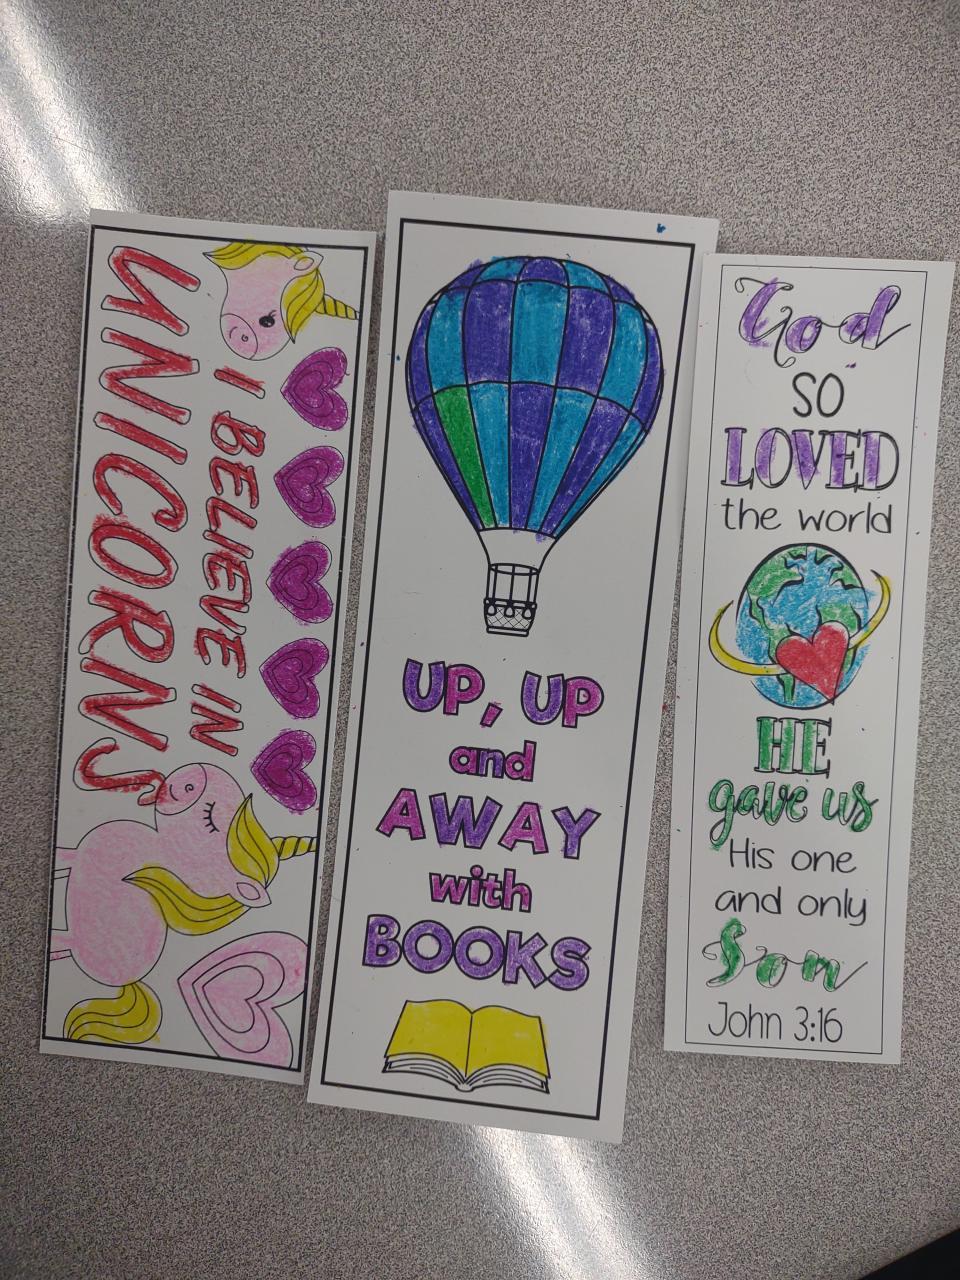 I BELIEVE IN
UNICORNS
UP, UP
and
AWAY
with
BOOKS
God
SO
LOVED
the world
HE
gave us
His one
and only
Son
John 3:16